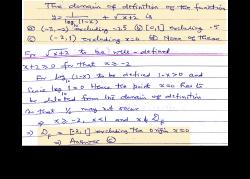 The domain of definition of the function
y = 1/log₁₀(1-x) + √x+2 is
(a) (-3,-2) excluding -2.5 (b) [0,1] excluding .5
(c) [-2,1) excluding x=0 (d) None of these
For √x+2 to be well-defined
x+2≥0 for that x≥-2
For log₁₀(1-x) to be defined 1-x>0 and
Since log 1=0 Hence the point x=0 has to
be deleted from the domain of definition
so that 1/ may not occur
⇒ x≥-2, x<1 and
⇒ D = [-2,1) excluding the origin x=0
⇒ Answer (c)